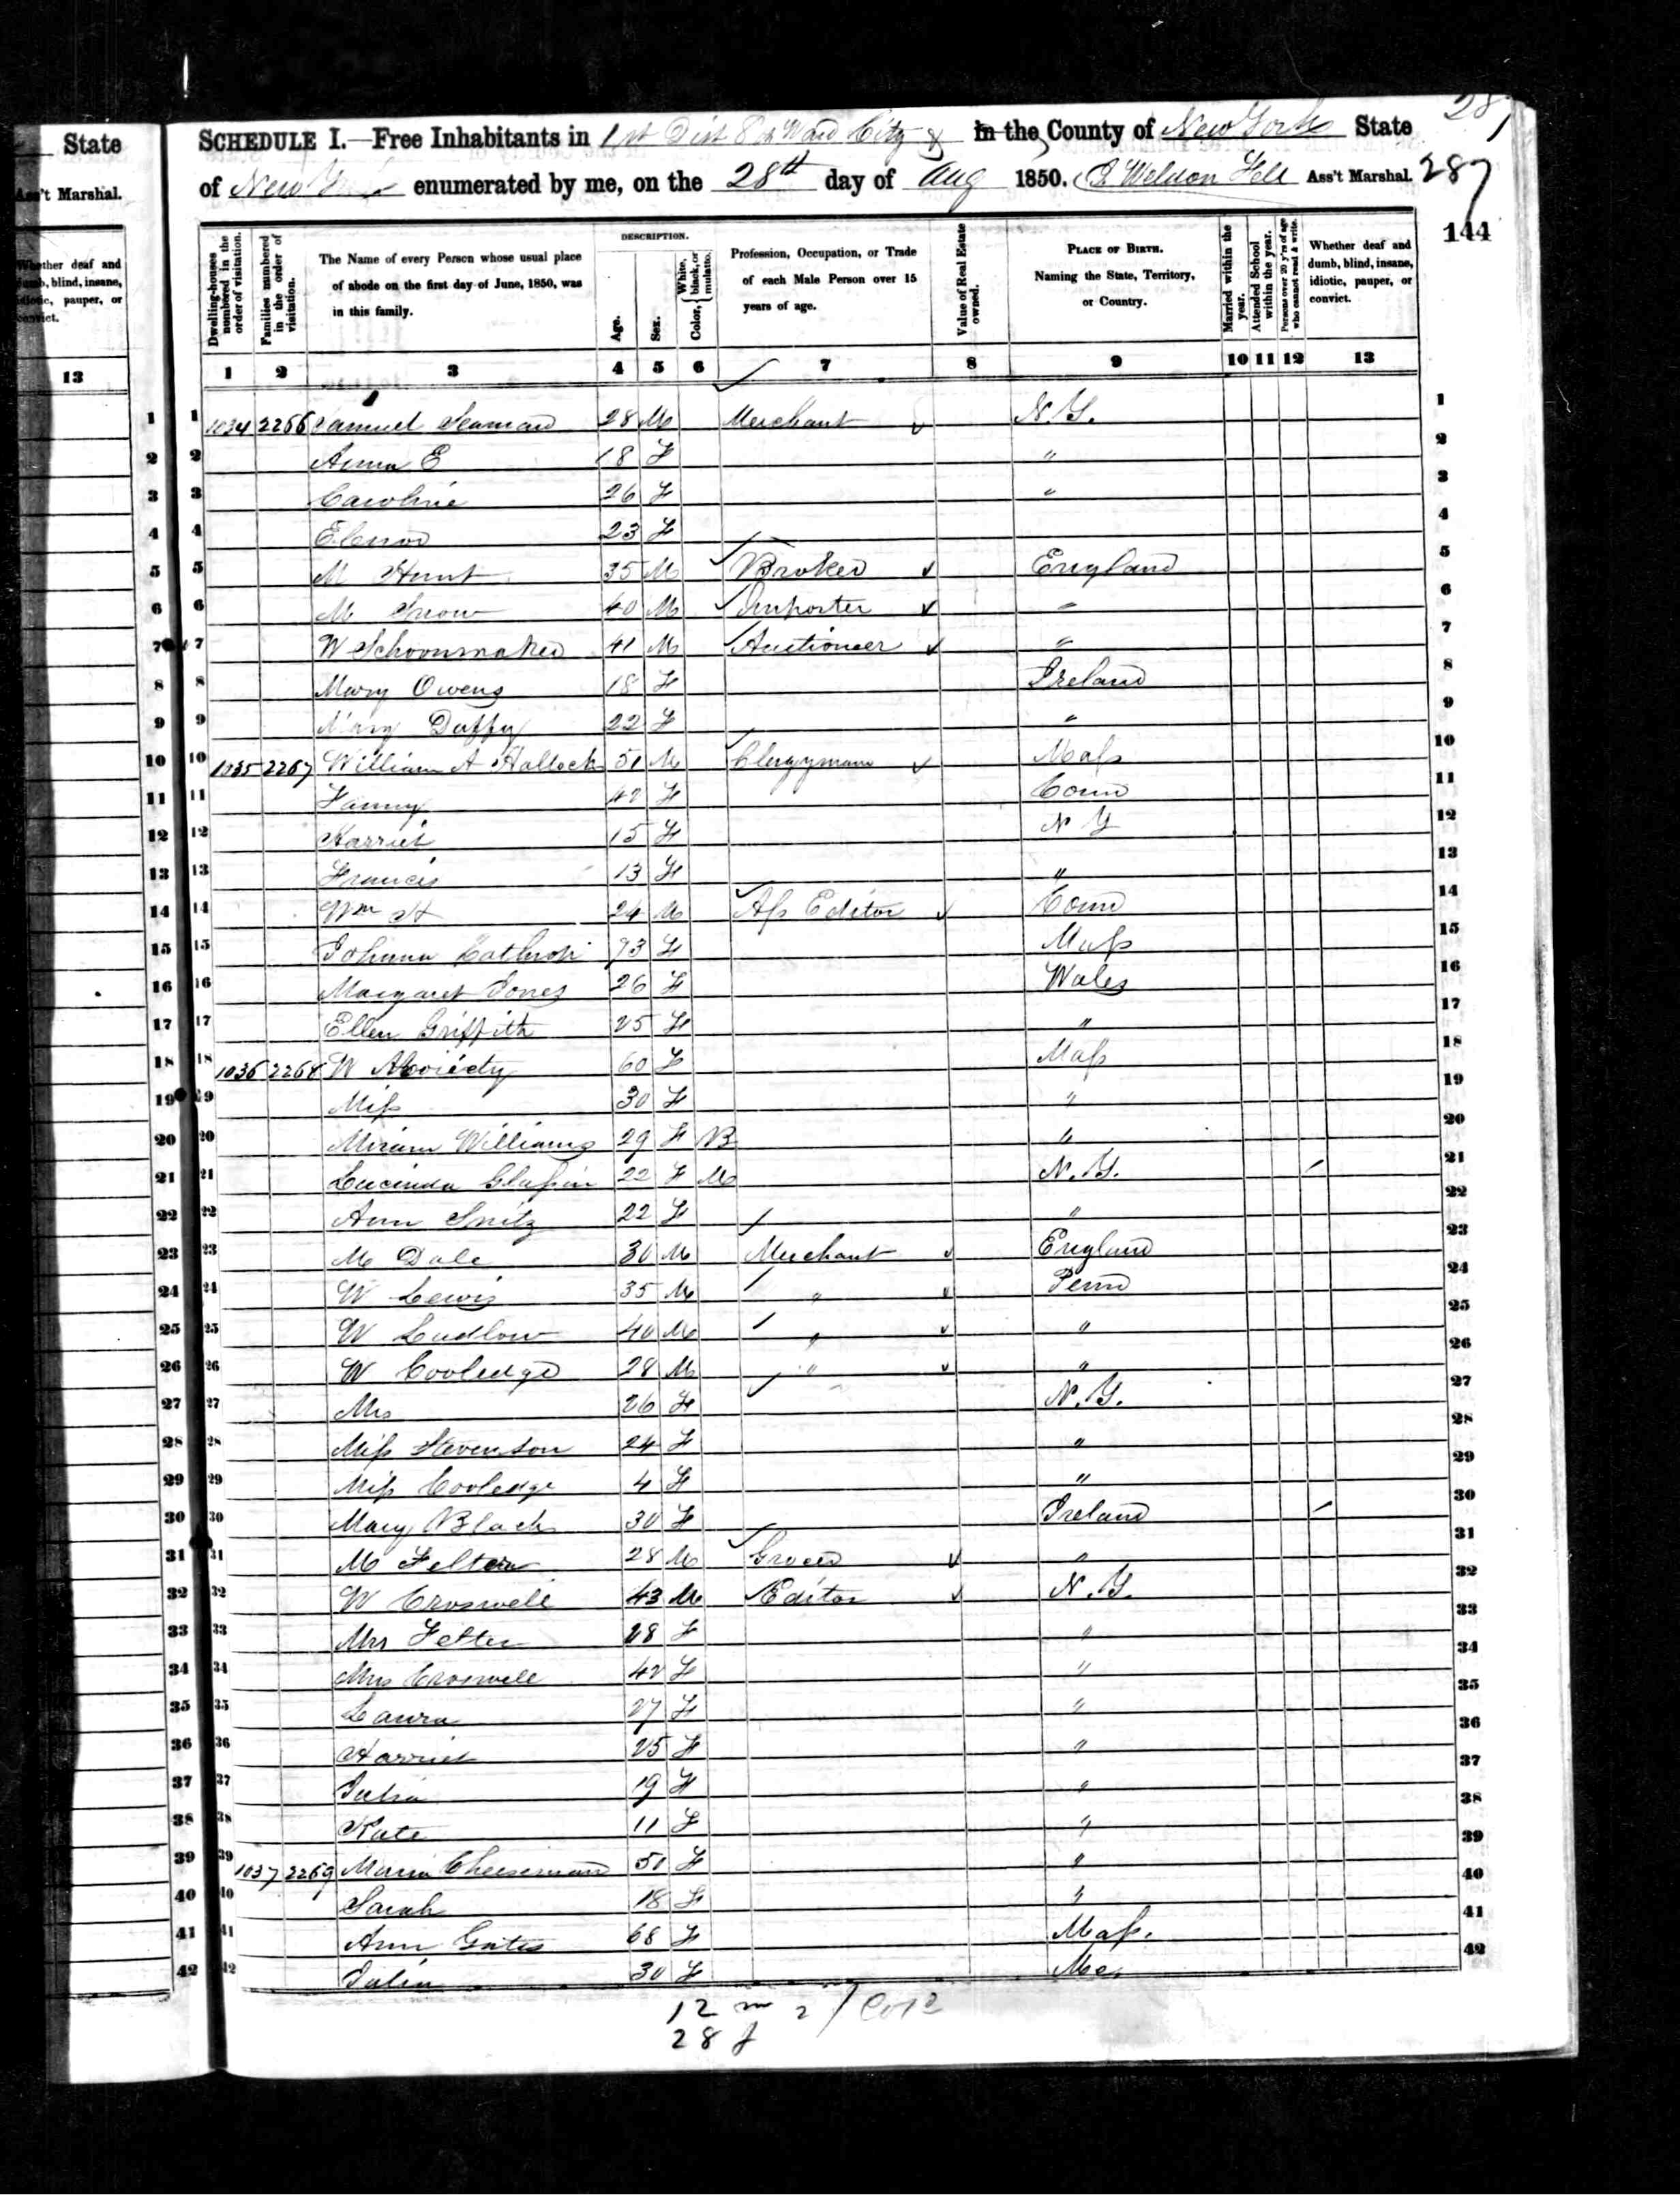 State
Ass't Marshal.
Whether deaf and dumb, blind, insane, idiotic, pauper, or convict.
13
28
SCHEDULE I.—Free Inhabitants in 1st Dist 8th Ward City & in the County of New York State
of New York enumerated by me, on the 28th day of Aug 1850. Weldon Fell Ass't Marshal.
287
144
Dwelling-houses numbered in the order of visitation.
Families numbered in the order of visitation.
The Name of every Person whose usual place of abode on the first day of June, 1850, was in this family.
DESCRIPTION.
Age.
Sex.
Color, White, black, or mulatto.
Profession, Occupation, or Trade of each Male Person over 15 years of age.
Value of Real Estate owned.
PLACE OF BIRTH. Naming the State, Territory, or Country.
Married within the year.
Attended School within the year.
Persons over 20 y'rs of age who cannot read & write.
Whether deaf and dumb, blind, insane, idiotic, pauper, or convict.
1 2 3 4 5 6 7 8 9 10 11 12 13
1 1034 2266 Samuel Seaman 28 M Merchant N.Y. 1
2 Anna E 18 F " 2
3 Caroline 26 F " 3
4 Elenor 23 F 4
5 M Hunt 35 M Broker England 5
6 M Snow 40 M Importer " 6
7 W Schoonmaker 41 M Auctioneer " 7
8 Mary Owens 18 F Ireland 8
9 Mary Duffy 22 F " 9
10 1035 2267 William A Hallock 51 M Clergyman Mass 10
11 Fanny 42 F Conn 11
12 Harriet 15 F N Y 12
13 Francis 13 F " 13
14 Wm H 24 M Ass Editor Conn 14
15 Johanna Lathrop 73 F Mass 15
16 Margaret Jones 26 F Wales 16
17 Ellen Griffith 25 F " 17
18 1036 2268 W 60 F Mass 18
19 Miss 30 F " 19
20 Miriam Williams 29 F B " 20
21 Lucinda 22 F M N.Y. 21
22 Ann 22 F " 22
23 M Dale 30 M Merchant England 23
24 W Lewis 35 M " Penn 24
25 W Ludlow 40 M " " 25
26 W Cooledge 28 M " " 26
27 Mrs 26 F N.Y. 27
28 Miss Stevenson 24 F " 28
29 Miss Cooledge 4 F " 29
30 Mary Black 30 F Ireland 30
31 M Felter 28 M Grocer " 31
32 W Croswell 43 M Editor N.Y. 32
33 Mrs Felter 28 F " 33
34 Mrs Croswell 42 F " 34
35 Laura 27 F " 35
36 Harriet 25 F " 36
37 Julia 19 F " 37
38 Kate 11 F " 38
39 1037 2269 Maria Cheeseman 50 F " 39
40 Sarah 18 F " 40
41 Ann Gates 68 F Mass. 41
42 Julia 30 F Me. 42
12 m 2/ Col'd
28 f